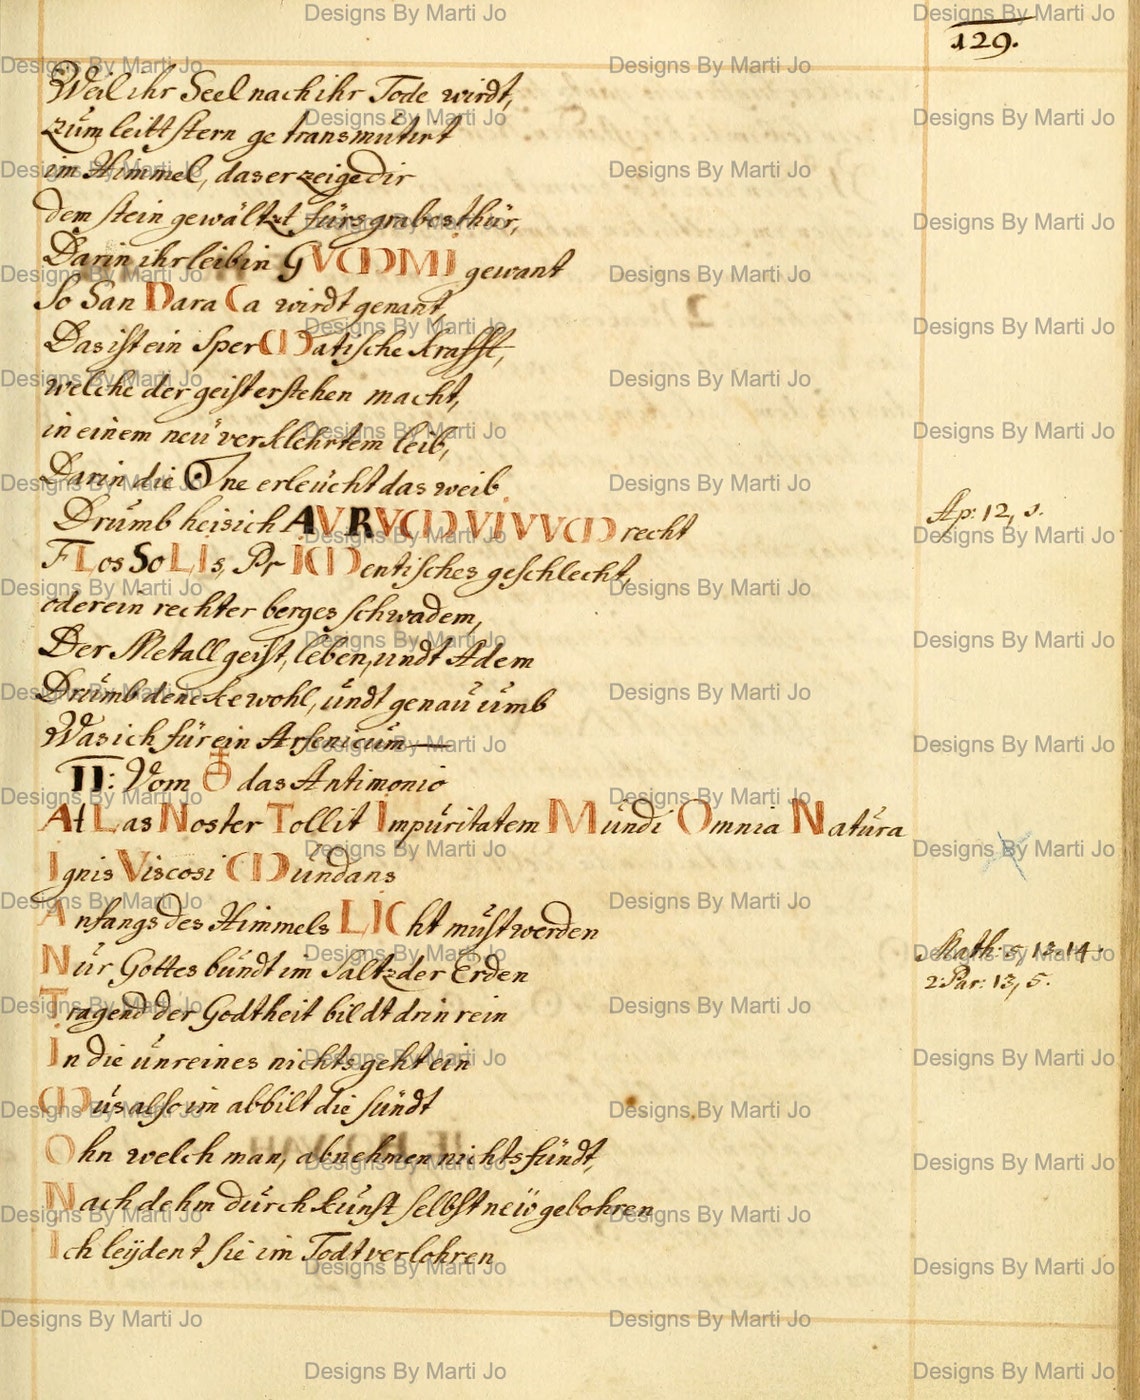 129.
Weil ihr Seel nach ihr Tode wirdt,
zum leitt stern ge transmutirt
im Himmel, das er zeige dir
dem stein gewältzt fürs grabes thür,
Darin ihr leib in GVCIƆMI gewant
So San Dara Ca wirdt genant,
Das ist ein SperCIƆatische krafft,
welche der geist erstehen macht,
in einem neu verklehrtem leib,
Darin die ☉ne erleucht das weib
Drumb heis ich AVRVCIƆ VIVVCIƆ recht
Ap: 12,
FLos SoLIs, PrICIƆentisches geschlecht,
oder ein rechter berges schwadem,
Der Metall geist, leben, undt Adem
Drumb dencke wohl, undt genau umb
Was ich für ein Arsenicum —
II: Vom ♁ das Antimonio
At Las Noster Tollit Impuritatem Mundi Omnia Natura
Ignis Viscosi CIƆundans
Anfangs des Himmels LICht must werden
Nur Gottes bundt im Saltz der Erden
Math: 5, 13.14.
2. Par: 13, 5.
Tragend der Godtheit bildt drin rein
In die unreines nichts geht ein
CIƆus also im abbilt die sündt
Ohn welch man, abnehmen nichts findt,
Nach dehm durch kunst selbst neü gebohren
Ich leijden t sie im Todt verlohren
Designs By Marti Jo